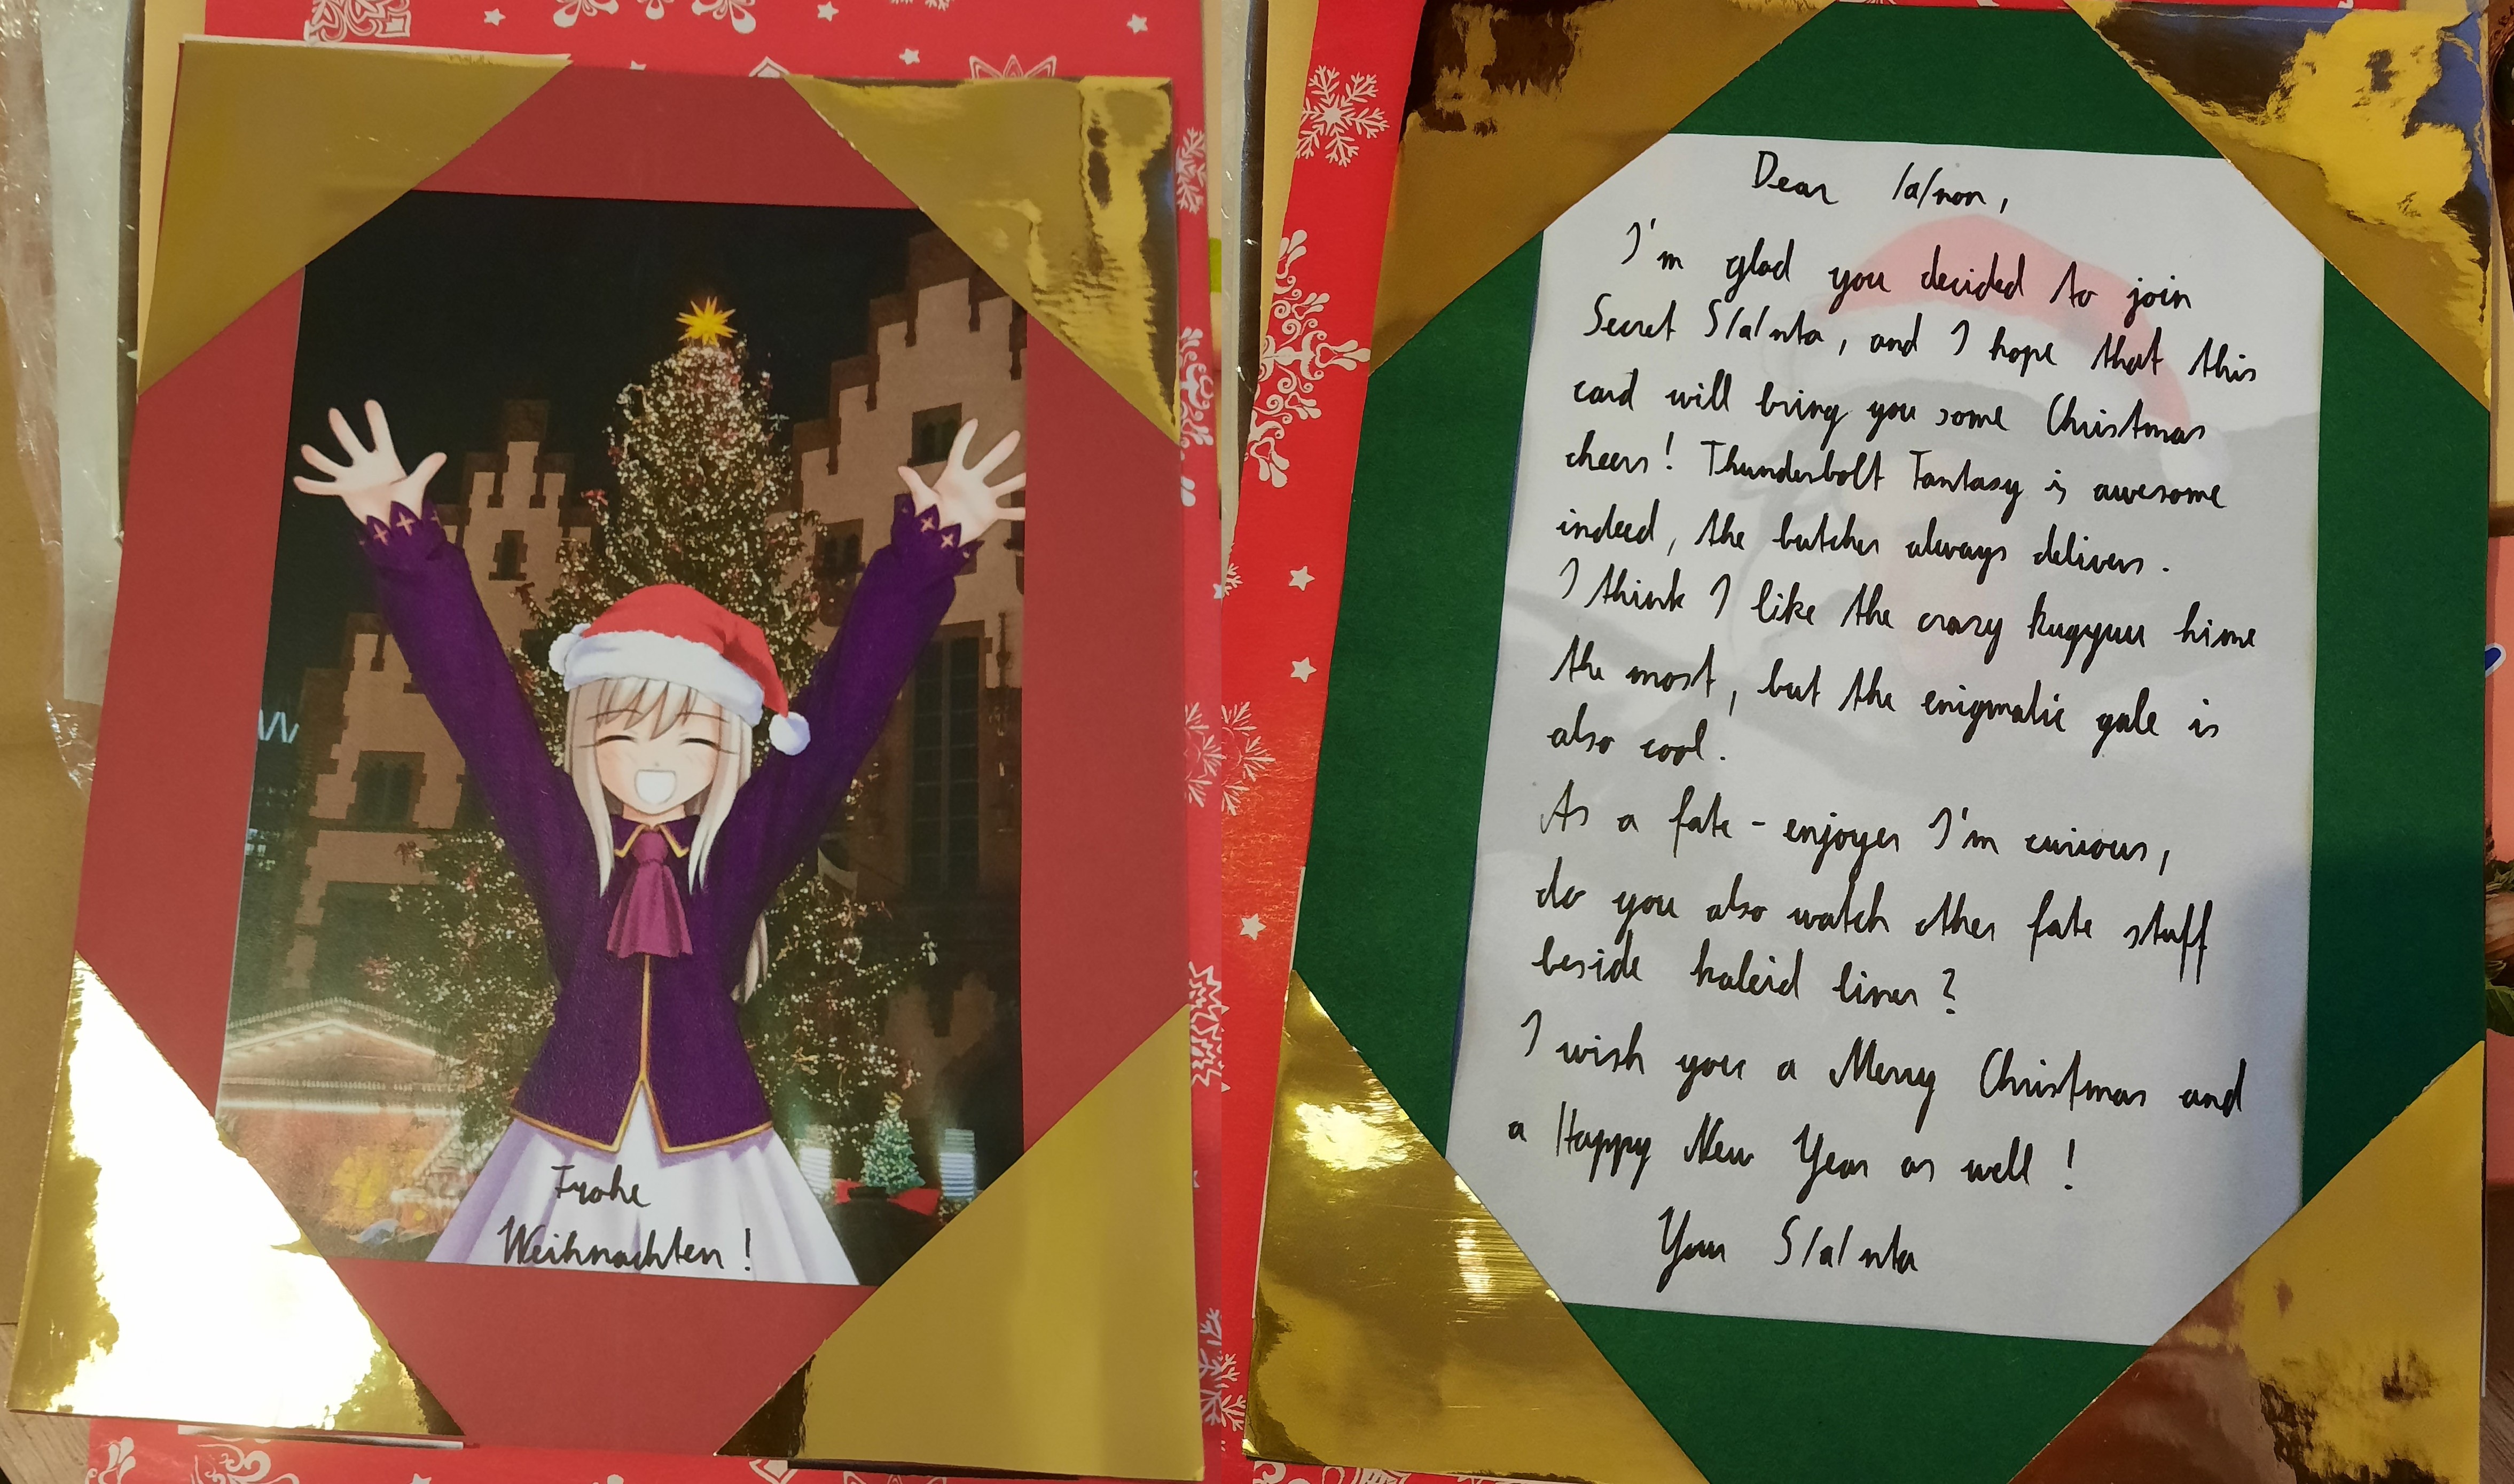 Frohe
Weihnachten!
Dear /a/non,
I'm glad you decided to join
Secret S/a/nta, and I hope that this
card will bring you some Christmas
cheers! Thunderbolt Fantasy is awesome
indeed, the butcher always delivers.
I think I like the crazy kugyuu hime
the most, but the enigmatic gale is
also cool.
As a fate-enjoyer I'm curious,
do you also watch other fate stuff
beside kaleid liner?
I wish you a Merry Christmas and
a Happy New Year as well!
Your S/a/nta